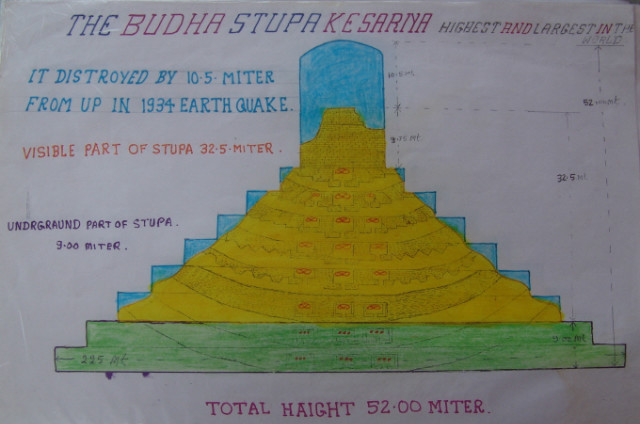 THE BUDHA STUPA KESARNA HIGHEST AND LARGEST IN THE
WORLD
IT DISTROYED BY 10.5. MITER
FROM UP IN 1934 EARTH QUAKE.
VISIBLE PART OF STUPA 32.5. MITER.
32.5 m
UNDRGRAUND PART OF STUPA.
9.00 MITER.
225 Mt
TOTAL HAIGHT 52.00 MITER.